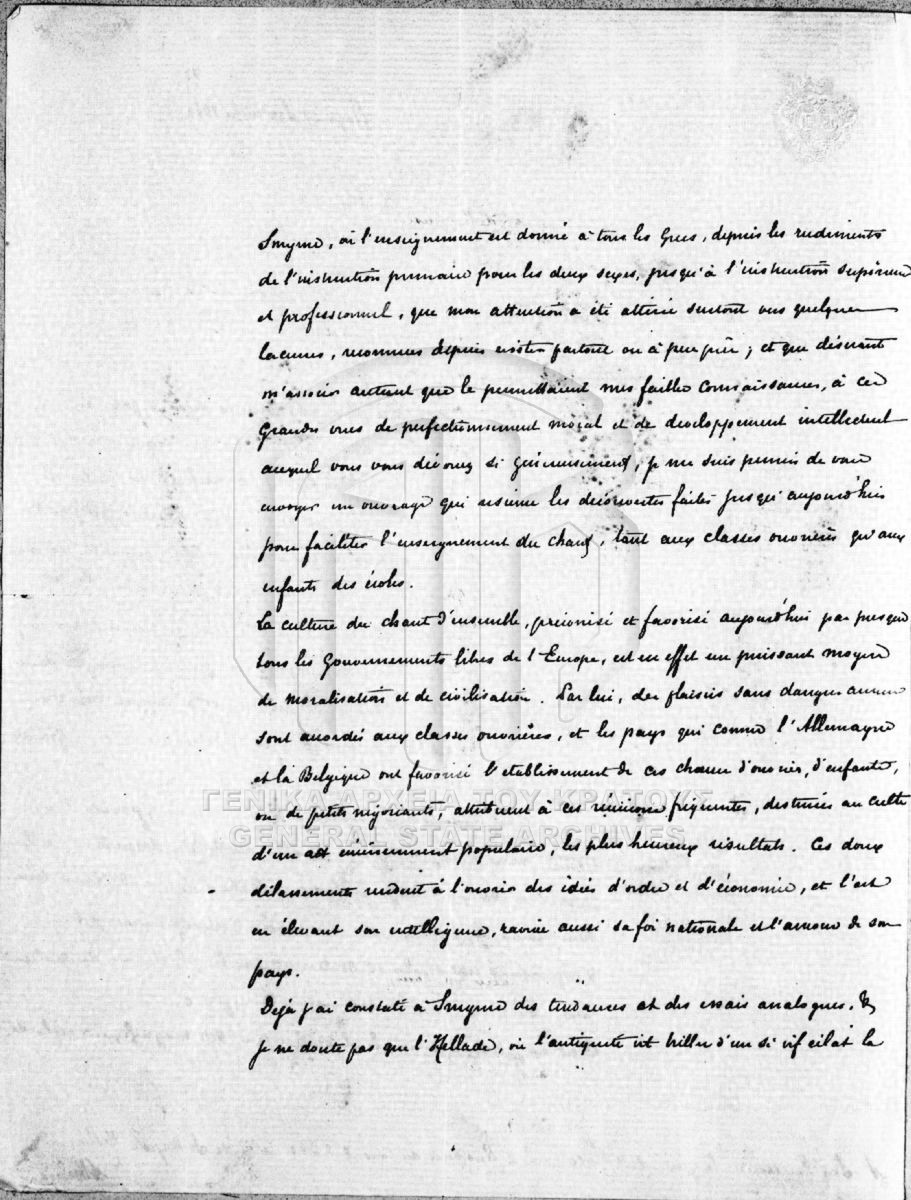 Smyrne, où l'enseignement est donné à tous les Grecs, depuis les rudiments
de l'instruction primaire pour les deux sexes, jusqu'à l'instruction supérieure
et professionnel, que mon attention a été attirée surtout vers quelques
lacunes, reconnues depuis exister partout ou à peu près; et que désirant
m'associer autant que le permettaient mes faibles connaissances, à ces
grandes vues de perfectionnement moral et de développement intellectuel
auquel vous vous dévouez si généreusement, je me suis permis de vous
envoyer un ouvrage qui résume les découvertes faites jusqu'aujourd'hui
pour faciliter l'enseignement du chant, tant aux classes ouvrières qu'aux
enfants des écoles.
La culture du chant d'ensemble, préconisé et favorisé aujourd'hui par presque
tous les Gouvernements libres de l'Europe, est en effet un puissant moyen
de moralisation et de civilisation. Par lui, des plaisirs sans danger aucun
sont accordés aux classes ouvrières, et les pays qui comme l'Allemagne
et la Belgique ont favorisé l'etablissement de ces chœurs d'ouvriers, d'enfants,
ou de petits négociants, attribuent à ces réunions fréquentes, destinées au culte
d'un art éminemment populaire, les plus heureux résultats. Ces doux
délassements rendent à l'ouvrier des idées d'ordre et d'économie, et l'art
en élevant son intelligence, ravive aussi sa foi nationale et l'amour de son
pays.
Dejà j'ai constaté à Smyrne des tendances et des essais analogues, &
je ne doute pas que l'Hellade, où l'antiquité vit briller d'un si vif éclat la
ΓΕΝΙΚΑ ΑΡΧΕΙΑ ΤΟΥ ΚΡΑΤΟΥΣ
GENERAL STATE ARCHIVES